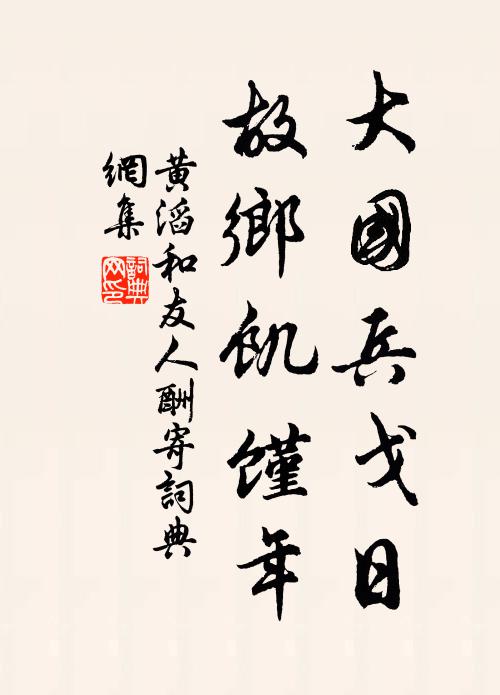 大國兵戈日
故鄉飢饉年
黃滔和友人酬寄詞典
網集
詞典
网印